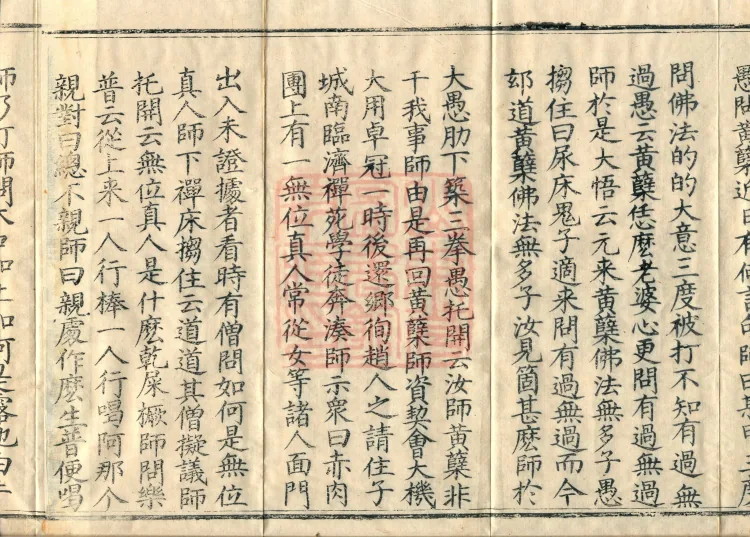 愚問黃蘗有何言句師曰某甲三度
問佛法的的大意三度被打不知有過無
過愚云黃蘗恁麽老婆心更問有過無過
師於是大悟云元来黃蘗佛法無多子愚
搊住曰尿床鬼子適来問有過無過而今
却道黃蘗佛法無多子汝見箇甚麽師於
大愚肋下築三拳愚托開云汝師黃蘗非
干我事師由是再回黃蘗師資契會大機
大用卓冠一時後還鄉徇趙人之請住子
城南臨濟禪苑學徒奔湊師示衆曰赤肉
團上有一無位真人常從女等諸人面門
出入未證據者看時有僧問如何是無位
真人師下禪床搊住云道道其僧擬議師
托開云無位真人是什麽乾屎橛師問樂
普云從上来一人行棒一人行喝阿那个
親對曰總不親師曰親處作麽生普便喝
師乃打師問木口和上如何是露地白